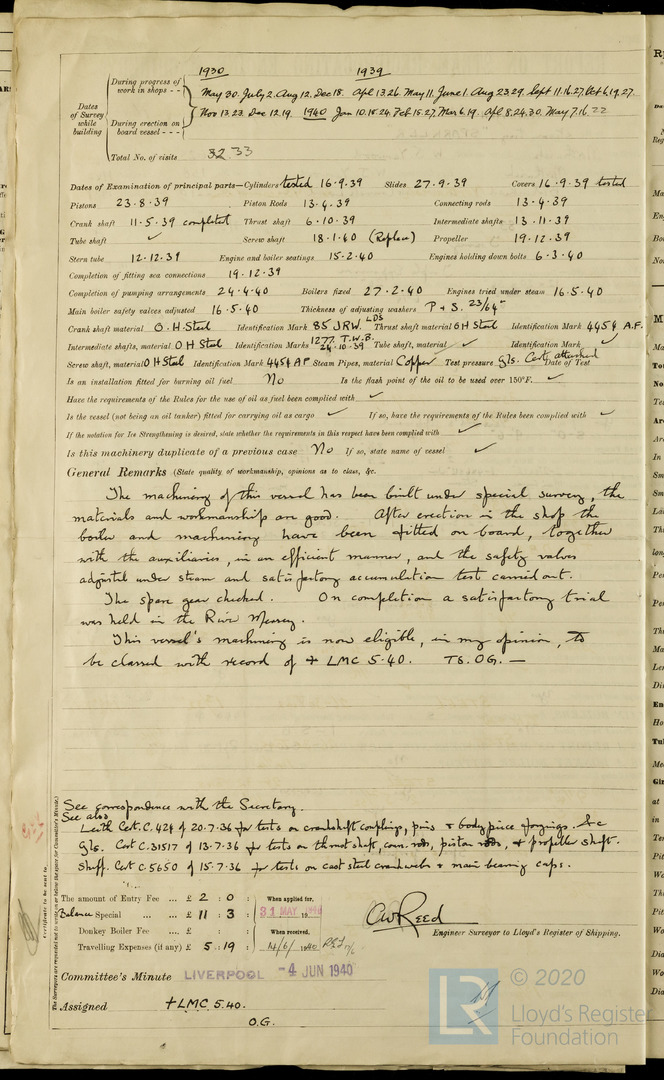 1930 1939
During progress of work in shops - - May 30. July 2. Aug 12. Dec 18. Apl 13.26. May 11. June 1. Aug 23.29. Sept 11.16.27. Oct 6.19.27.
Dates of Survey while building
During erection on board vessel - - - Nov 13.23. Dec 12.19. 1940 Jan 10.18.24. Feb 15.27. Mar 6.19. Apl 8.24.30. May 7.16.22
Total No. of visits 32.33
Dates of Examination of principal parts—Cylinders tested 16.9.39 Slides 27.9.39 Covers 16.9.39 tested
Pistons 23.8.39 Piston Rods 13.4.39 Connecting rods 13.4.39
Crank shaft 11.5.39 completed Thrust shaft 6.10.39 Intermediate shafts 13.11.39
Tube shaft ✓ Screw shaft 18.1.40 (Replace) Propeller 19.12.39
Stern tube 12.12.39 Engine and boiler seatings 15.2.40 Engines holding down bolts 6.3.40
Completion of fitting sea connections 19.12.39
Completion of pumping arrangements 24.4.40 Boilers fixed 27.2.40 Engines tried under steam 16.5.40
Main boiler safety valves adjusted 16.5.40 Thickness of adjusting washers P & S. 23/64"
Crank shaft material O.H. Steel Identification Mark 85 JRW. LDS Thrust shaft material OH Steel Identification Mark 4454 A.F.
Intermediate shafts, material OH Steel Identification Marks 1277 T.W.B. 24.10.39 Tube shaft, material ✓ Identification Mark ✓
Screw shaft, material OH Steel Identification Mark 4454 AF Steam Pipes, material Copper Test pressure Gls. Cert. attached Date of Test
Is an installation fitted for burning oil fuel No Is the flash point of the oil to be used over 150°F. ✓
Have the requirements of the Rules for the use of oil as fuel been complied with ✓
Is the vessel (not being an oil tanker) fitted for carrying oil as cargo ✓ If so, have the requirements of the Rules been complied with ✓
If the notation for Ice Strengthening is desired, state whether the requirements in this respect have been complied with ✓
Is this machinery duplicate of a previous case No If so, state name of vessel ✓
General Remarks (State quality of workmanship, opinions as to class, &c.
The machinery of this vessel has been built under special survey, the
materials and workmanship are good. After erection in the shop the
boiler and machinery have been fitted on board, together
with the auxiliaries, in an efficient manner, and the safety valves
adjusted under steam and satisfactory accumulation test carried out.
The spare gear checked. On completion a satisfactory trial
was held in the River Mersey.
This vessel's machinery is now eligible, in my opinion, to
be classed with record of + LMC 5.40. TS. OG. —
See correspondence with the Secretary.
See also
Leith Cert. C. 424 of 20.7.36 for tests on crankshaft couplings, pins & body piece forgings. &c
Gls. Cert C.31517 of 13.7.36 for tests on thrust shaft, conn. rods, piston rods, & propeller shaft.
Sheff. Cert C.5650 of 15.7.36 for tests on cast steel crankwebs & main bearing caps.
The amount of Entry Fee ... £ 2 : 0 : When applied for,
Balance Special ... £ 11 : 3 : 31 MAY 1940
Donkey Boiler Fee ... £ : : When received,
Travelling Expenses (if any) £ 5 : 19 : 14/6/1940
CW Reed
Engineer Surveyor to Lloyd's Register of Shipping.
Committee's Minute LIVERPOOL -4 JUN 1940
Assigned + LMC 5.40.
O.G.
Certificate to be sent to
(The Surveyors are requested not to write on or below the space for Committee's Minute.)
LR
© 2020
Lloyd's Register
Foundation